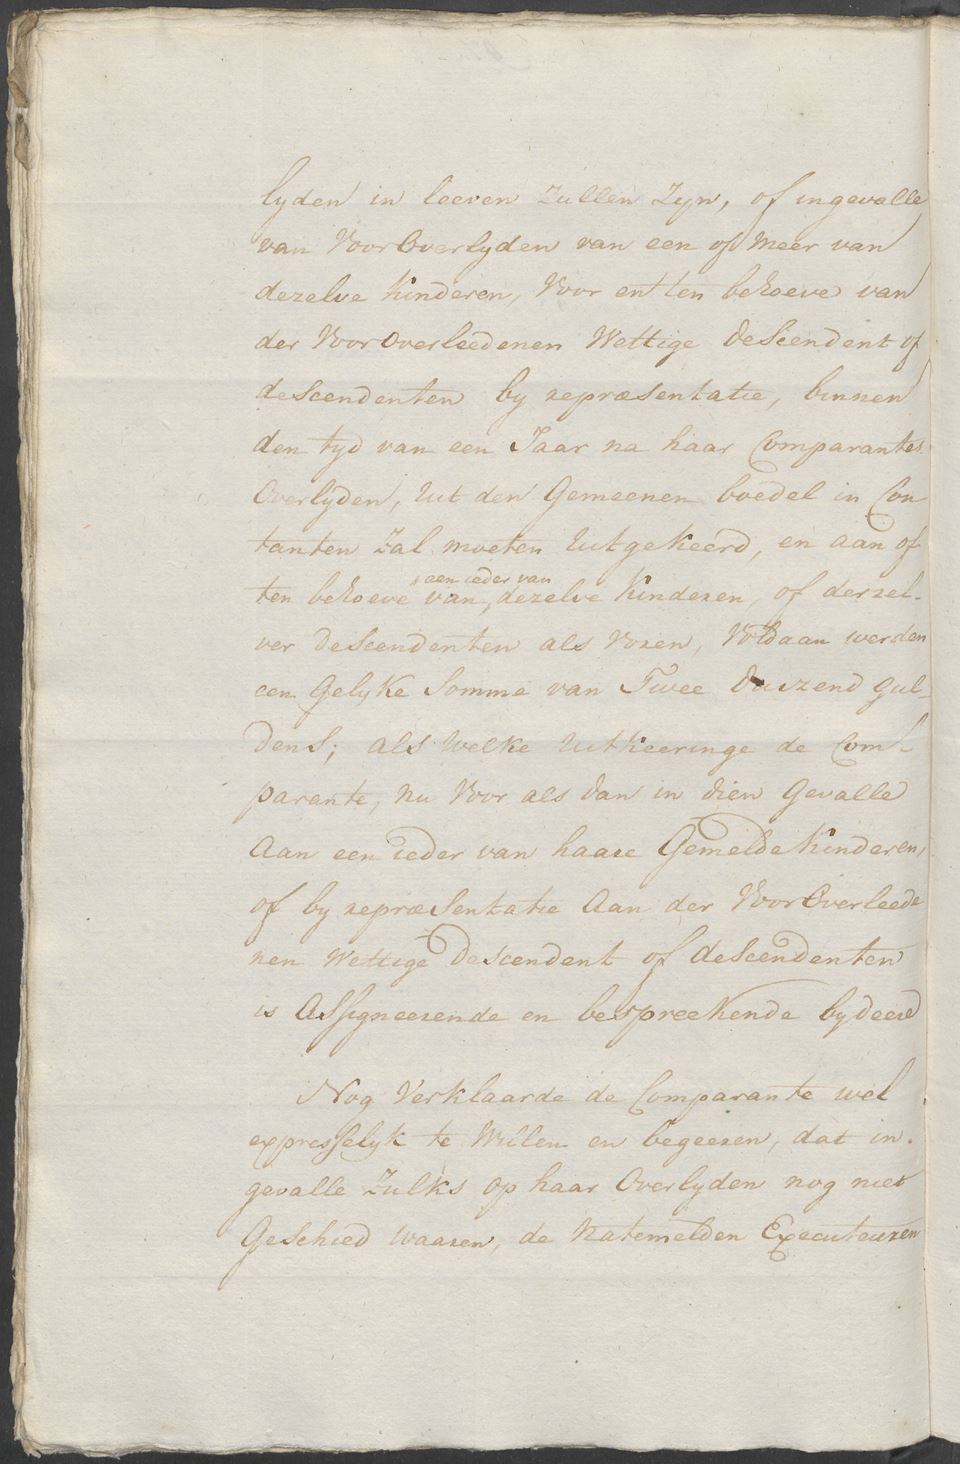 lyden in leeven Zullen Zyn, of ingevalle
van VoorOverlyden van een of Meer van
dezelve Kinderen, Voor en ten behoeve van
der VoorOverleedenen Wettige descendent of
descendenten by repræsentatie, binnen
den tyd van een Jaar na haar Comparantes
Overlyden, Uit den Gemeenen boedel in Con
tanten Zal moeten Uitgekeerd, en aan of
een ieder van
ten behoeve van, dezelve Kinderen, of derzel-
ver descendenten als Voren, Voldaan werden
een Gelyke Somme van Twee Duizend Gul-
dens; als Welke Uitkeeringe de Com-
parante, nu Voor als dan in dien Gevalle
Aan een ieder van haare Gemelde Kinderen,
of by repræsentatie Aan der VoorOverleede
nen Wettige descendent of descendenten
is Assigneerende en bespreekende by deese
Nog Verklaarde de Comparante wel
expresselyk te Willen en begeeren, dat in-
gevalle Zulks op haar Overlyden nog niet
Geschied waaren, de Natemelden Executeuren